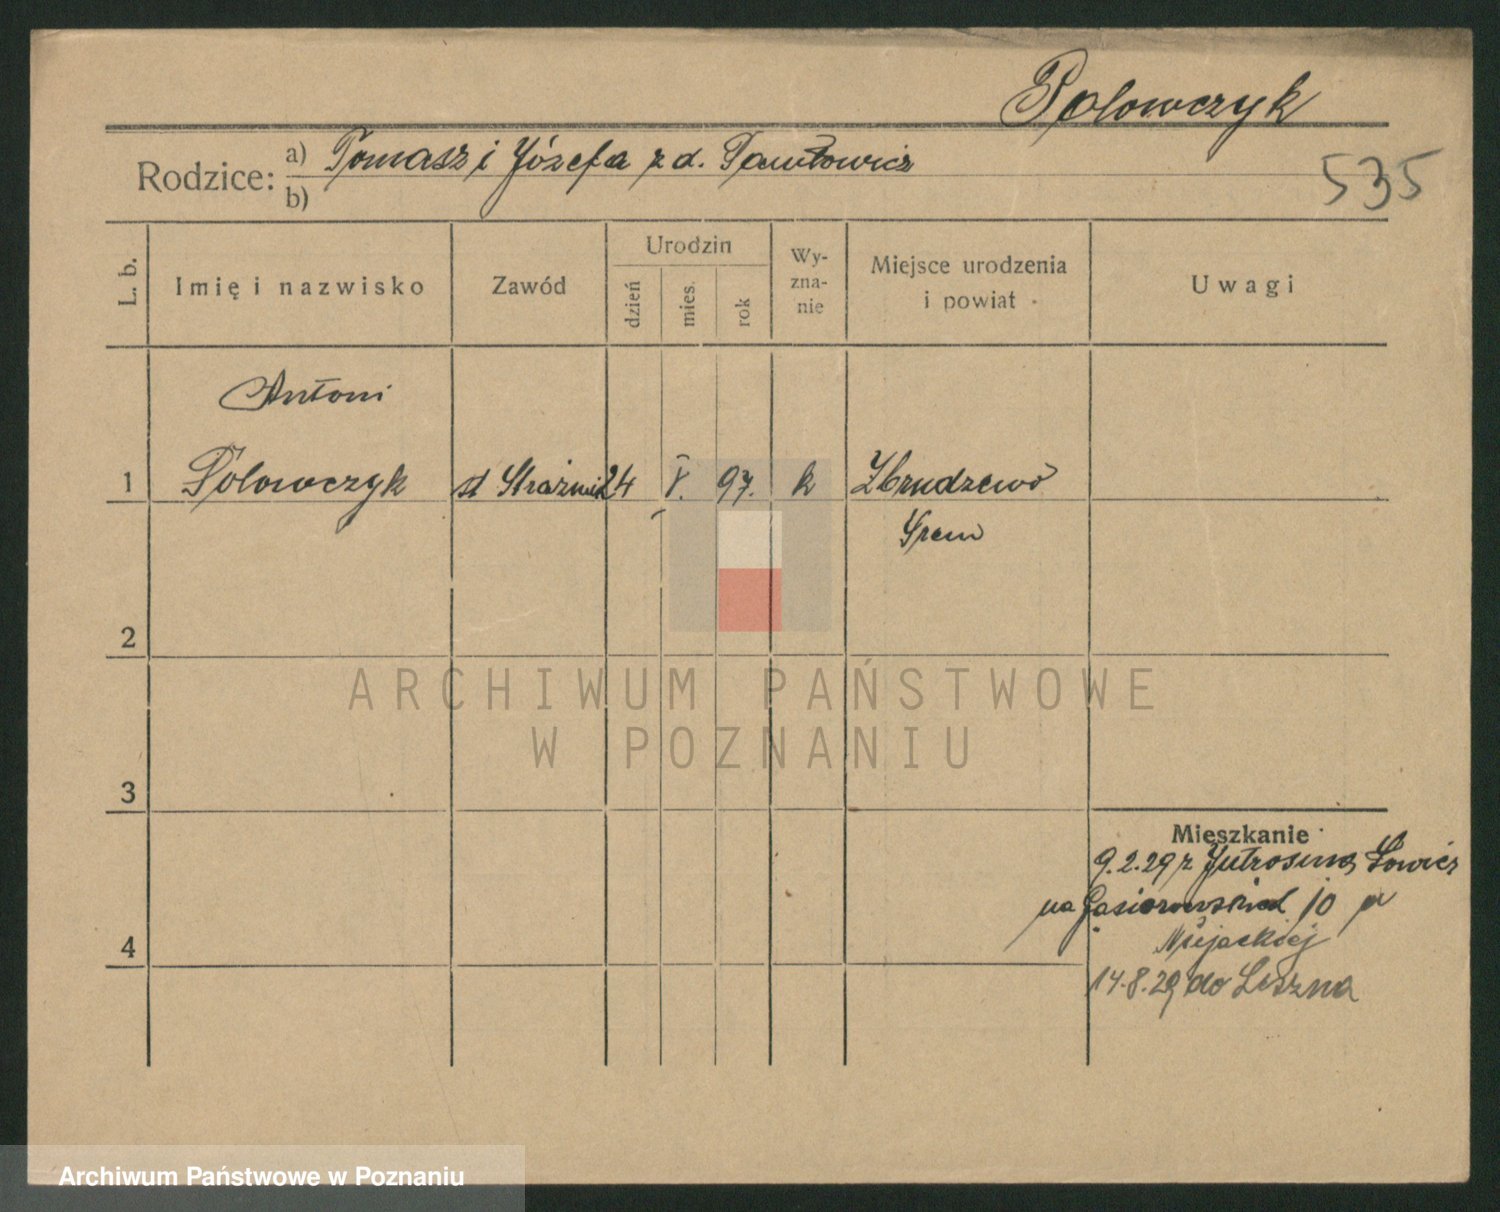 Polowczyk
Rodzice: a) Tomasz i Józefa z d. Pawłowicz
b)
535
L. b.
Imię i nazwisko
Zawód
Urodzin
dzień
mies.
rok
Wy-
zna-
nie
Miejsce urodzenia
i powiat
Uwagi
Antoni
1 Polowczyk st Strażnik 24 V. 97. k Zbrudzewo
Śrem
2
ARCHIWUM PAŃSTWOWE
W POZNANIU
3
Mieszkanie
9.2.29 z Jutrosina
na 10
4
14.8.29 do Leszna
Archiwum Państwowe w Poznaniu